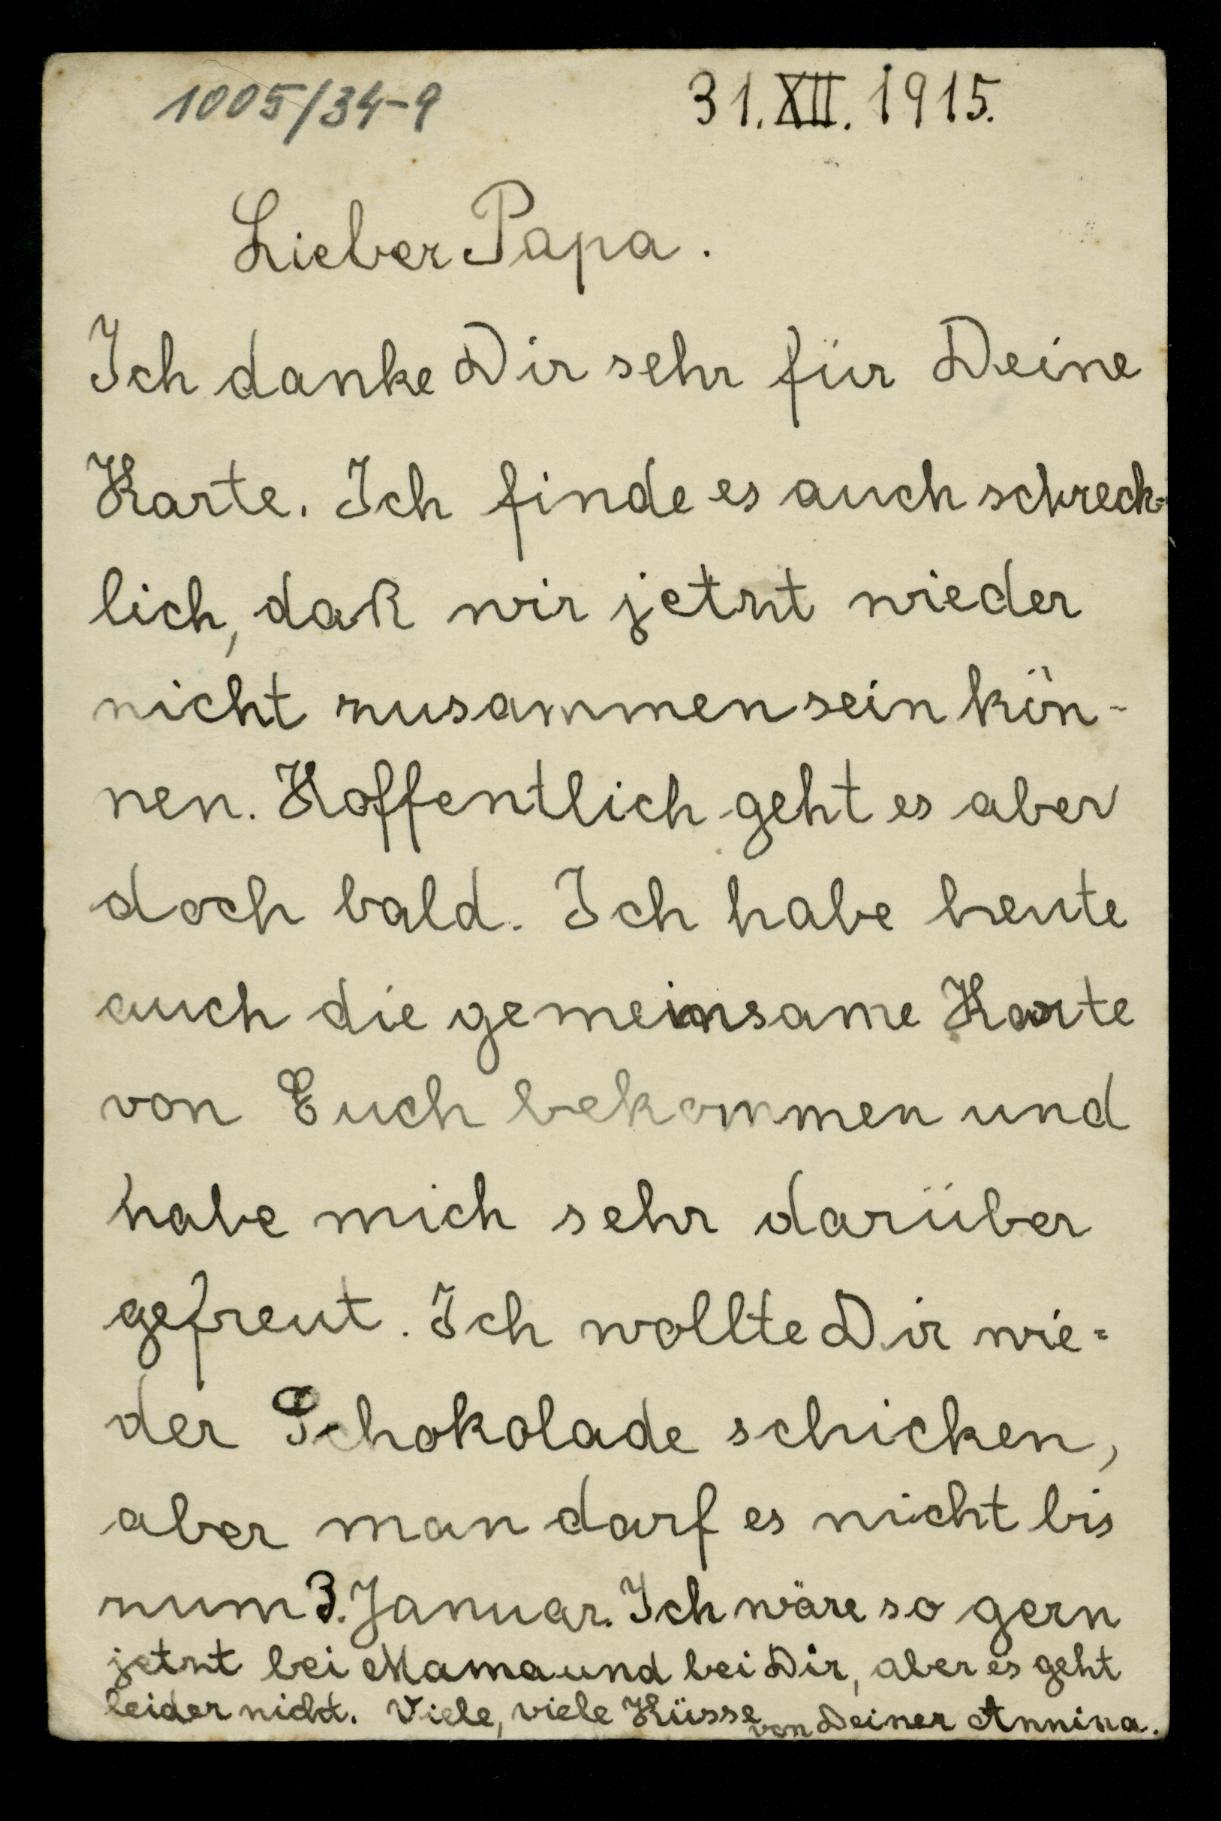 1005/34-9
31.XII.1915.
Lieber Papa.
Ich danke Dir sehr für Deine
Karte. Ich finde es auch schreck-
lich, daß wir jetzt wieder
nicht zusammen sein kön-
nen. Hoffentlich geht es aber
doch bald. Ich habe heute
auch die gemeinsame Karte
von Euch bekommen und
habe mich sehr darüber
gefreut. Ich wollte Dir wie-
der Schokolade schicken,
aber man darf es nicht bis
zum 3. Januar. Ich wäre so gern
jetzt bei Mama und bei Dir, aber es geht
leider nicht. Viele, viele Küsse von Deiner Annina.